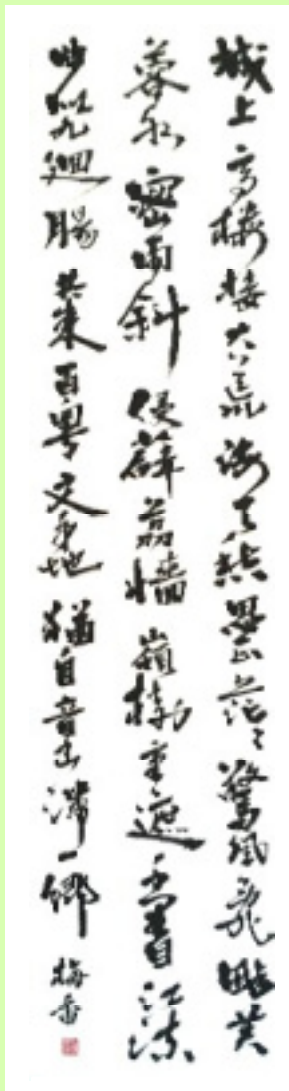 城上高楼接大荒海天愁思正茫茫驚風亂颭芙
蓉水密雨斜侵薜荔墻嶺樹重遮千里目江流
曲似九迴腸共來百粤文身地猶自音書滯一鄉